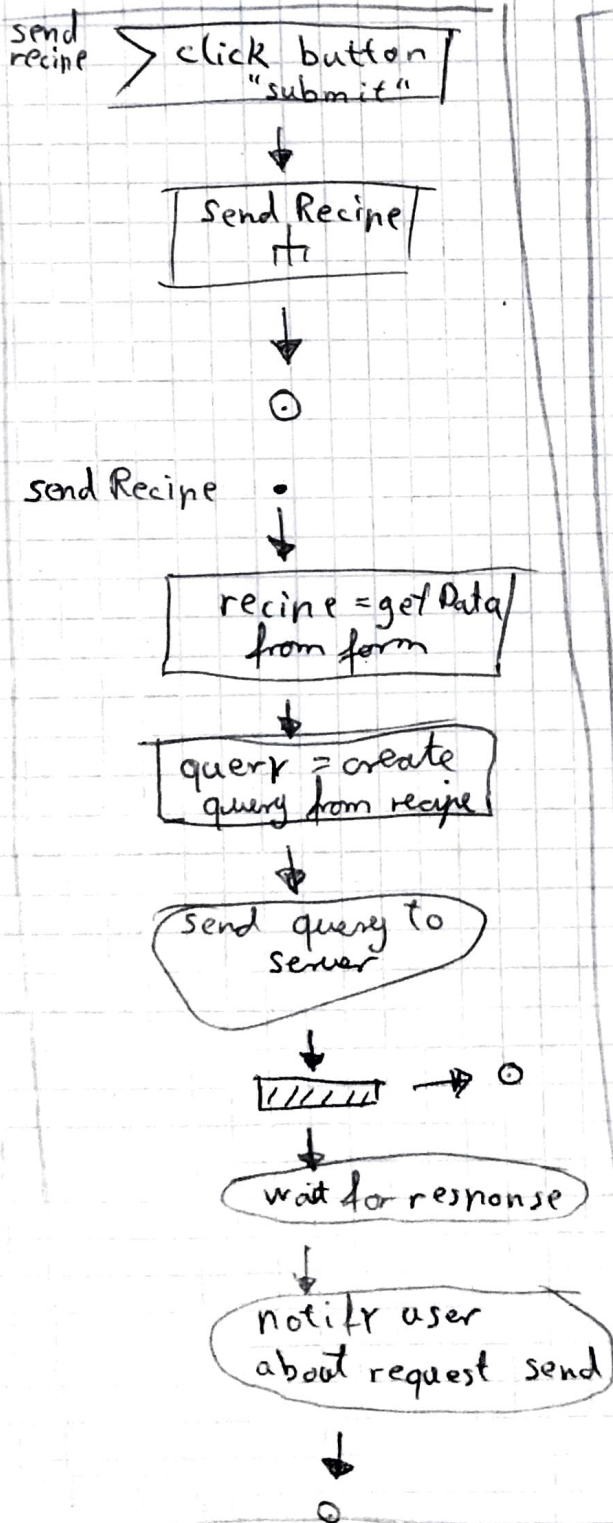 send
recipe
click button
"submit"
Send Recipe
send Recipe
recipe = get Data
from form
query = create
query from recipe
send query to
server
wait for response
notify user
about request send